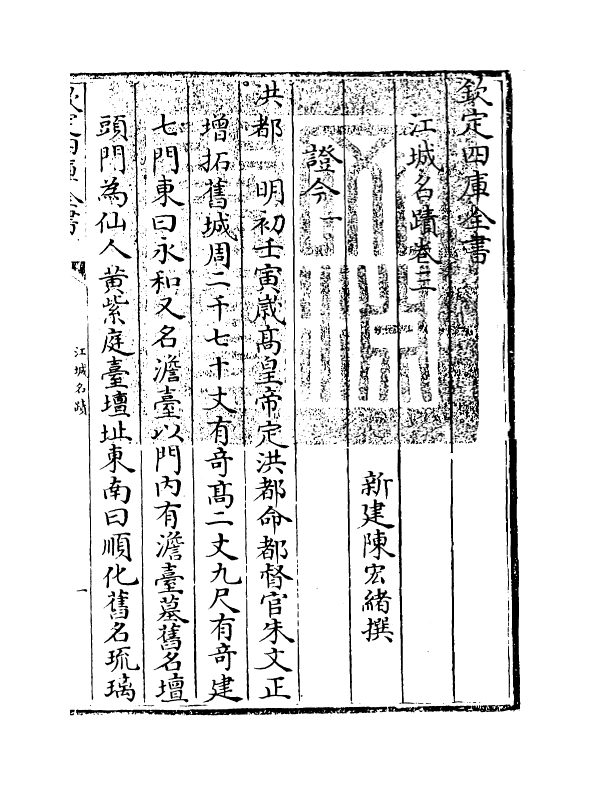 欽定四庫全書
江城名蹟卷三
新建陳宏緒撰
證今一
洪都 明初壬寅歲髙皇帝定洪都命都督官朱文正
增拓舊城周二千七十丈有竒髙二丈九尺有竒建
七門東曰永和又名澹臺以門内有澹臺墓舊名壇
頭門為仙人黄紫庭臺壇址東南曰順化舊名琉璃
欽定四庫全書
江城名蹟
一